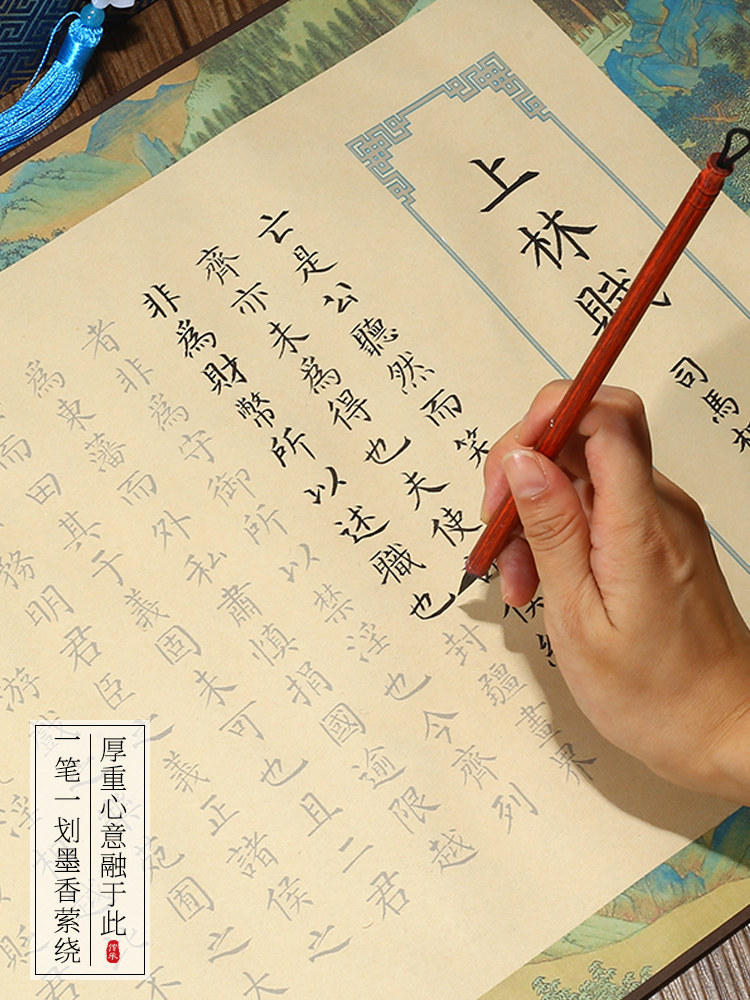 上林賦
司馬相
亡是公聽然而笑
齊亦未為得也夫使侯納
非為財幣所以述職也封疆畫界
者非為守御所以禁淫也今齊列
為東藩而外私肅慎捐國逾限越
而田其于義固未可也且二君
務明君臣之義正諸侯之
游戲之苑囿之大
厚重心意融于此
一笔一划墨香萦绕